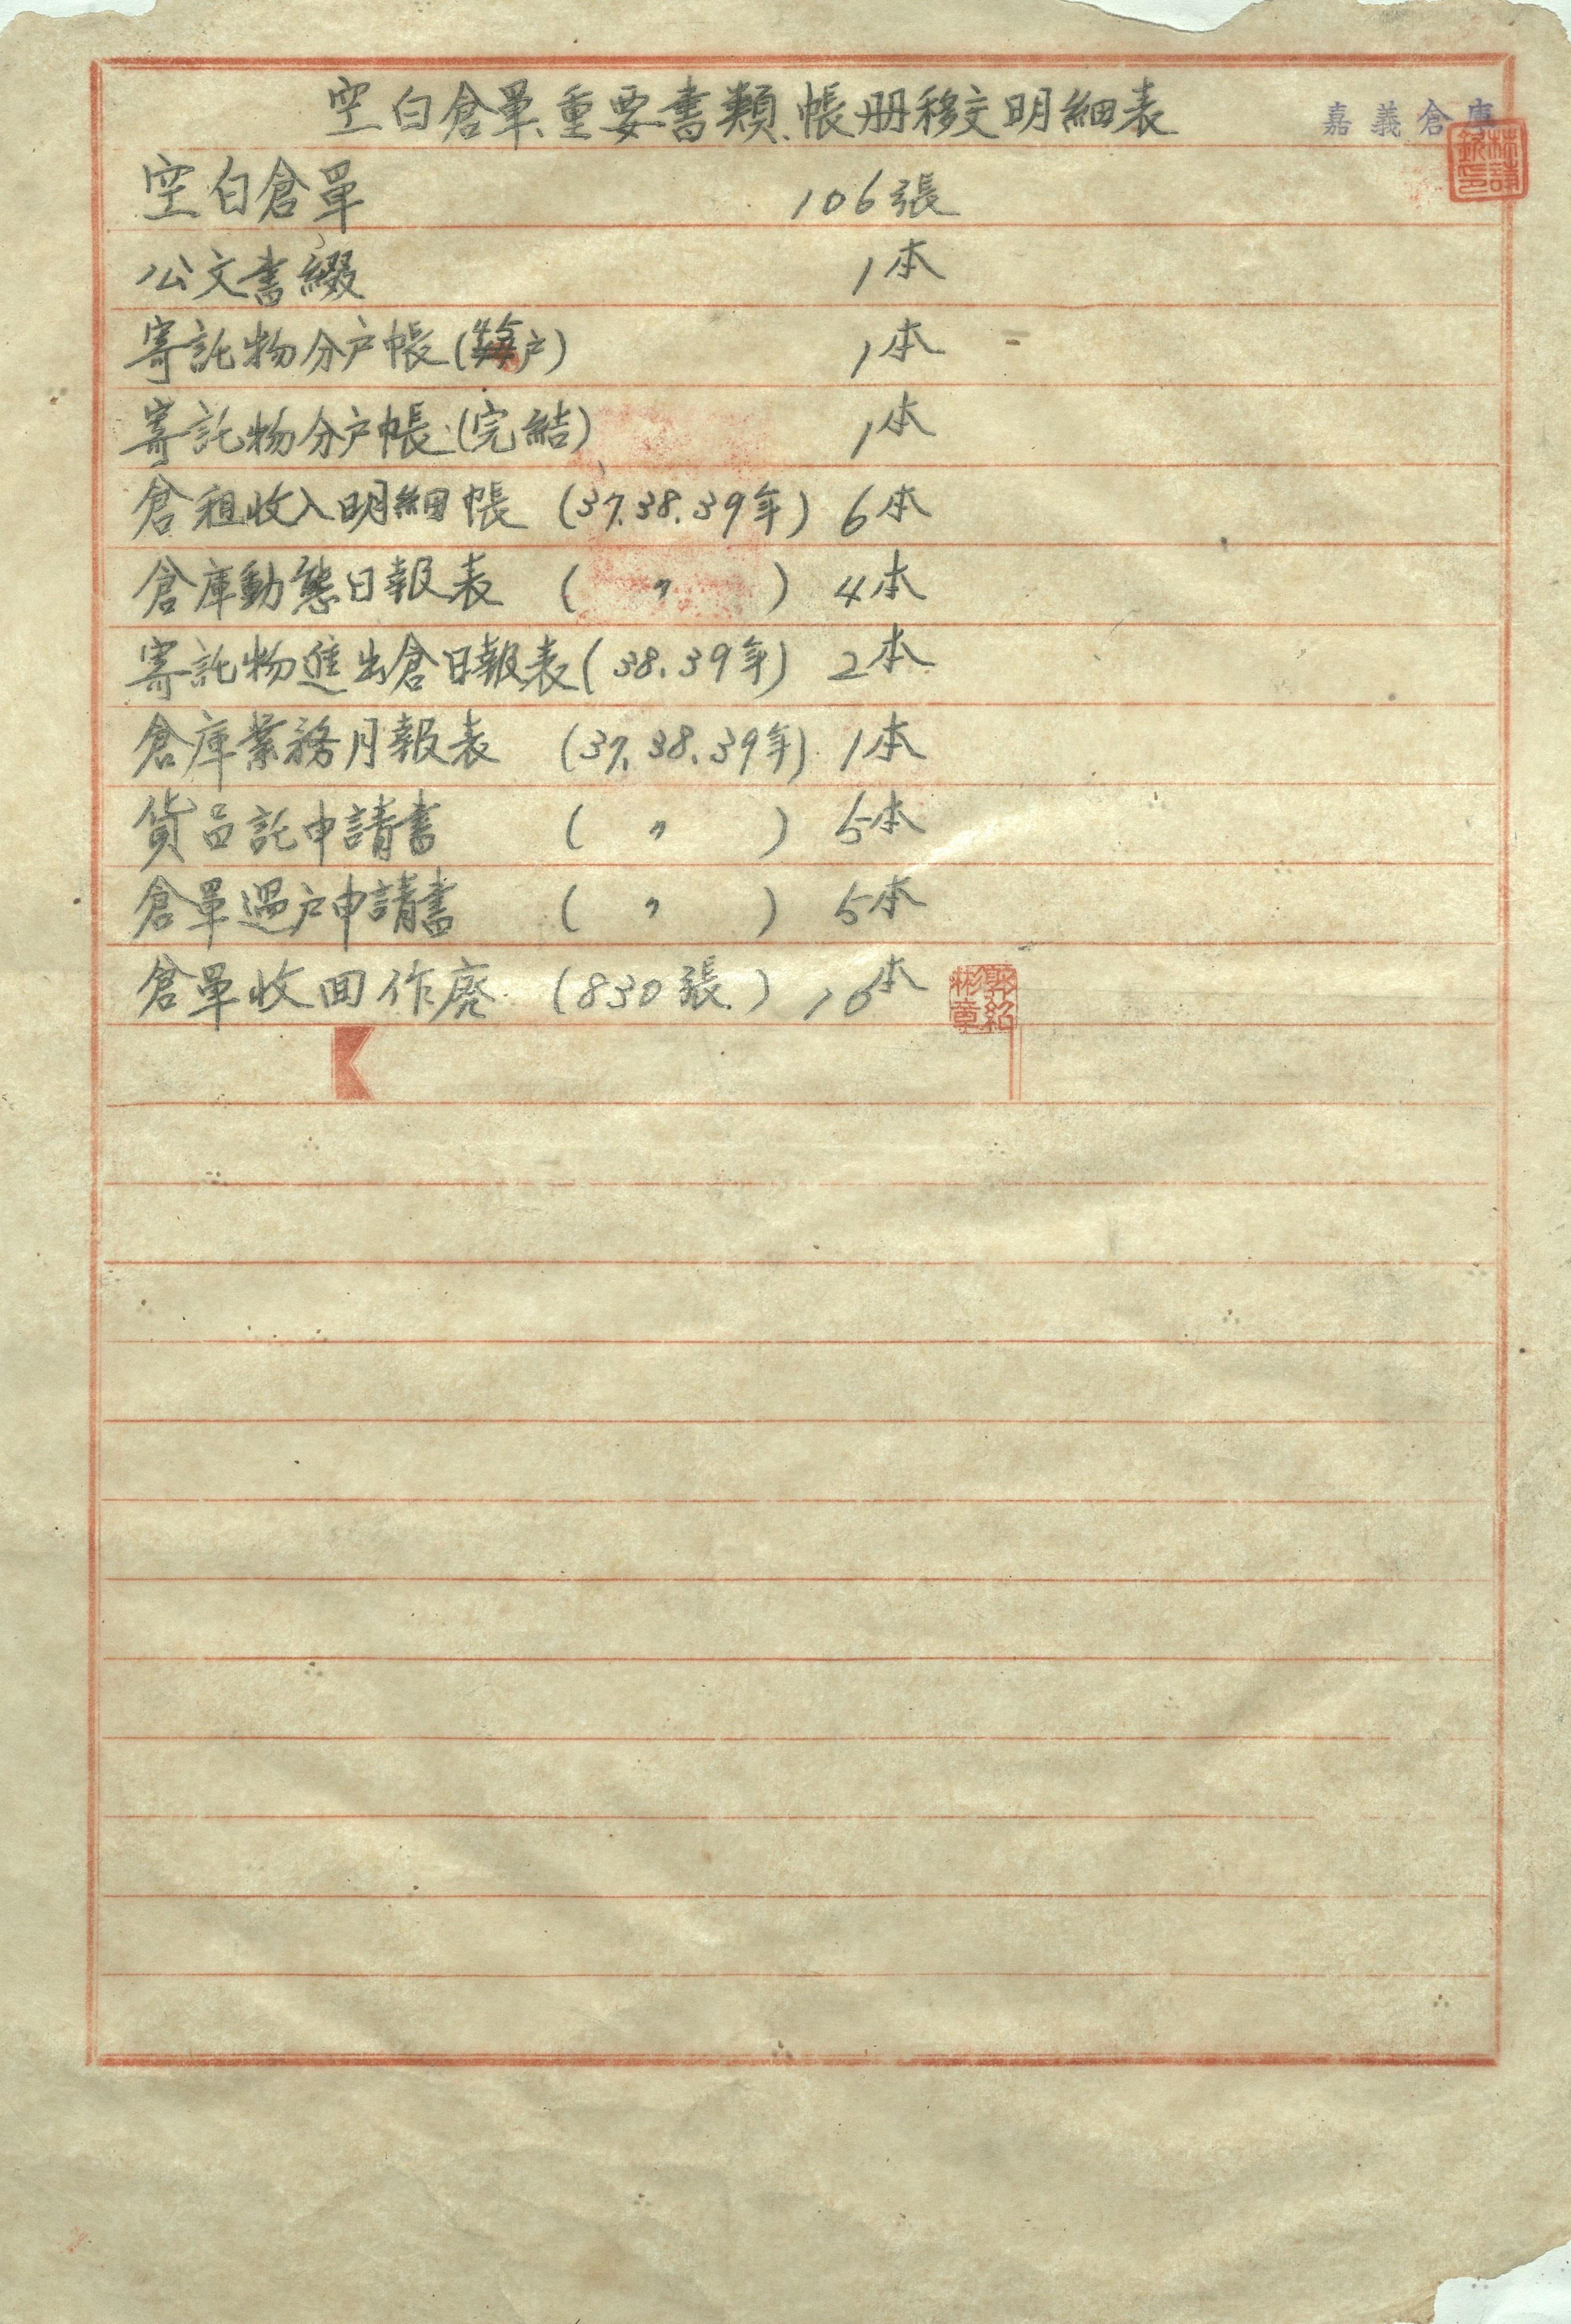 空白倉單、重要書類、帳册移交明細表
嘉義倉庫
林詩欽印
空白倉單 106張
公文書綴 1本
寄託物分户帳(户) 1本
寄託物分户帳(完結) 1本
倉租收入明細帳 (37.38.39年) 6本
倉庫動態日報表 ( 〃 ) 4本
寄託物進出倉日報表(38.39年) 2本
倉庫業務月報表 (37.38.39年) 1本
貨品託申請書 ( 〃 ) 5本
倉單過户申請書 ( 〃 ) 5本
倉單收回作廢 (830張) 10本
郭紹彬章